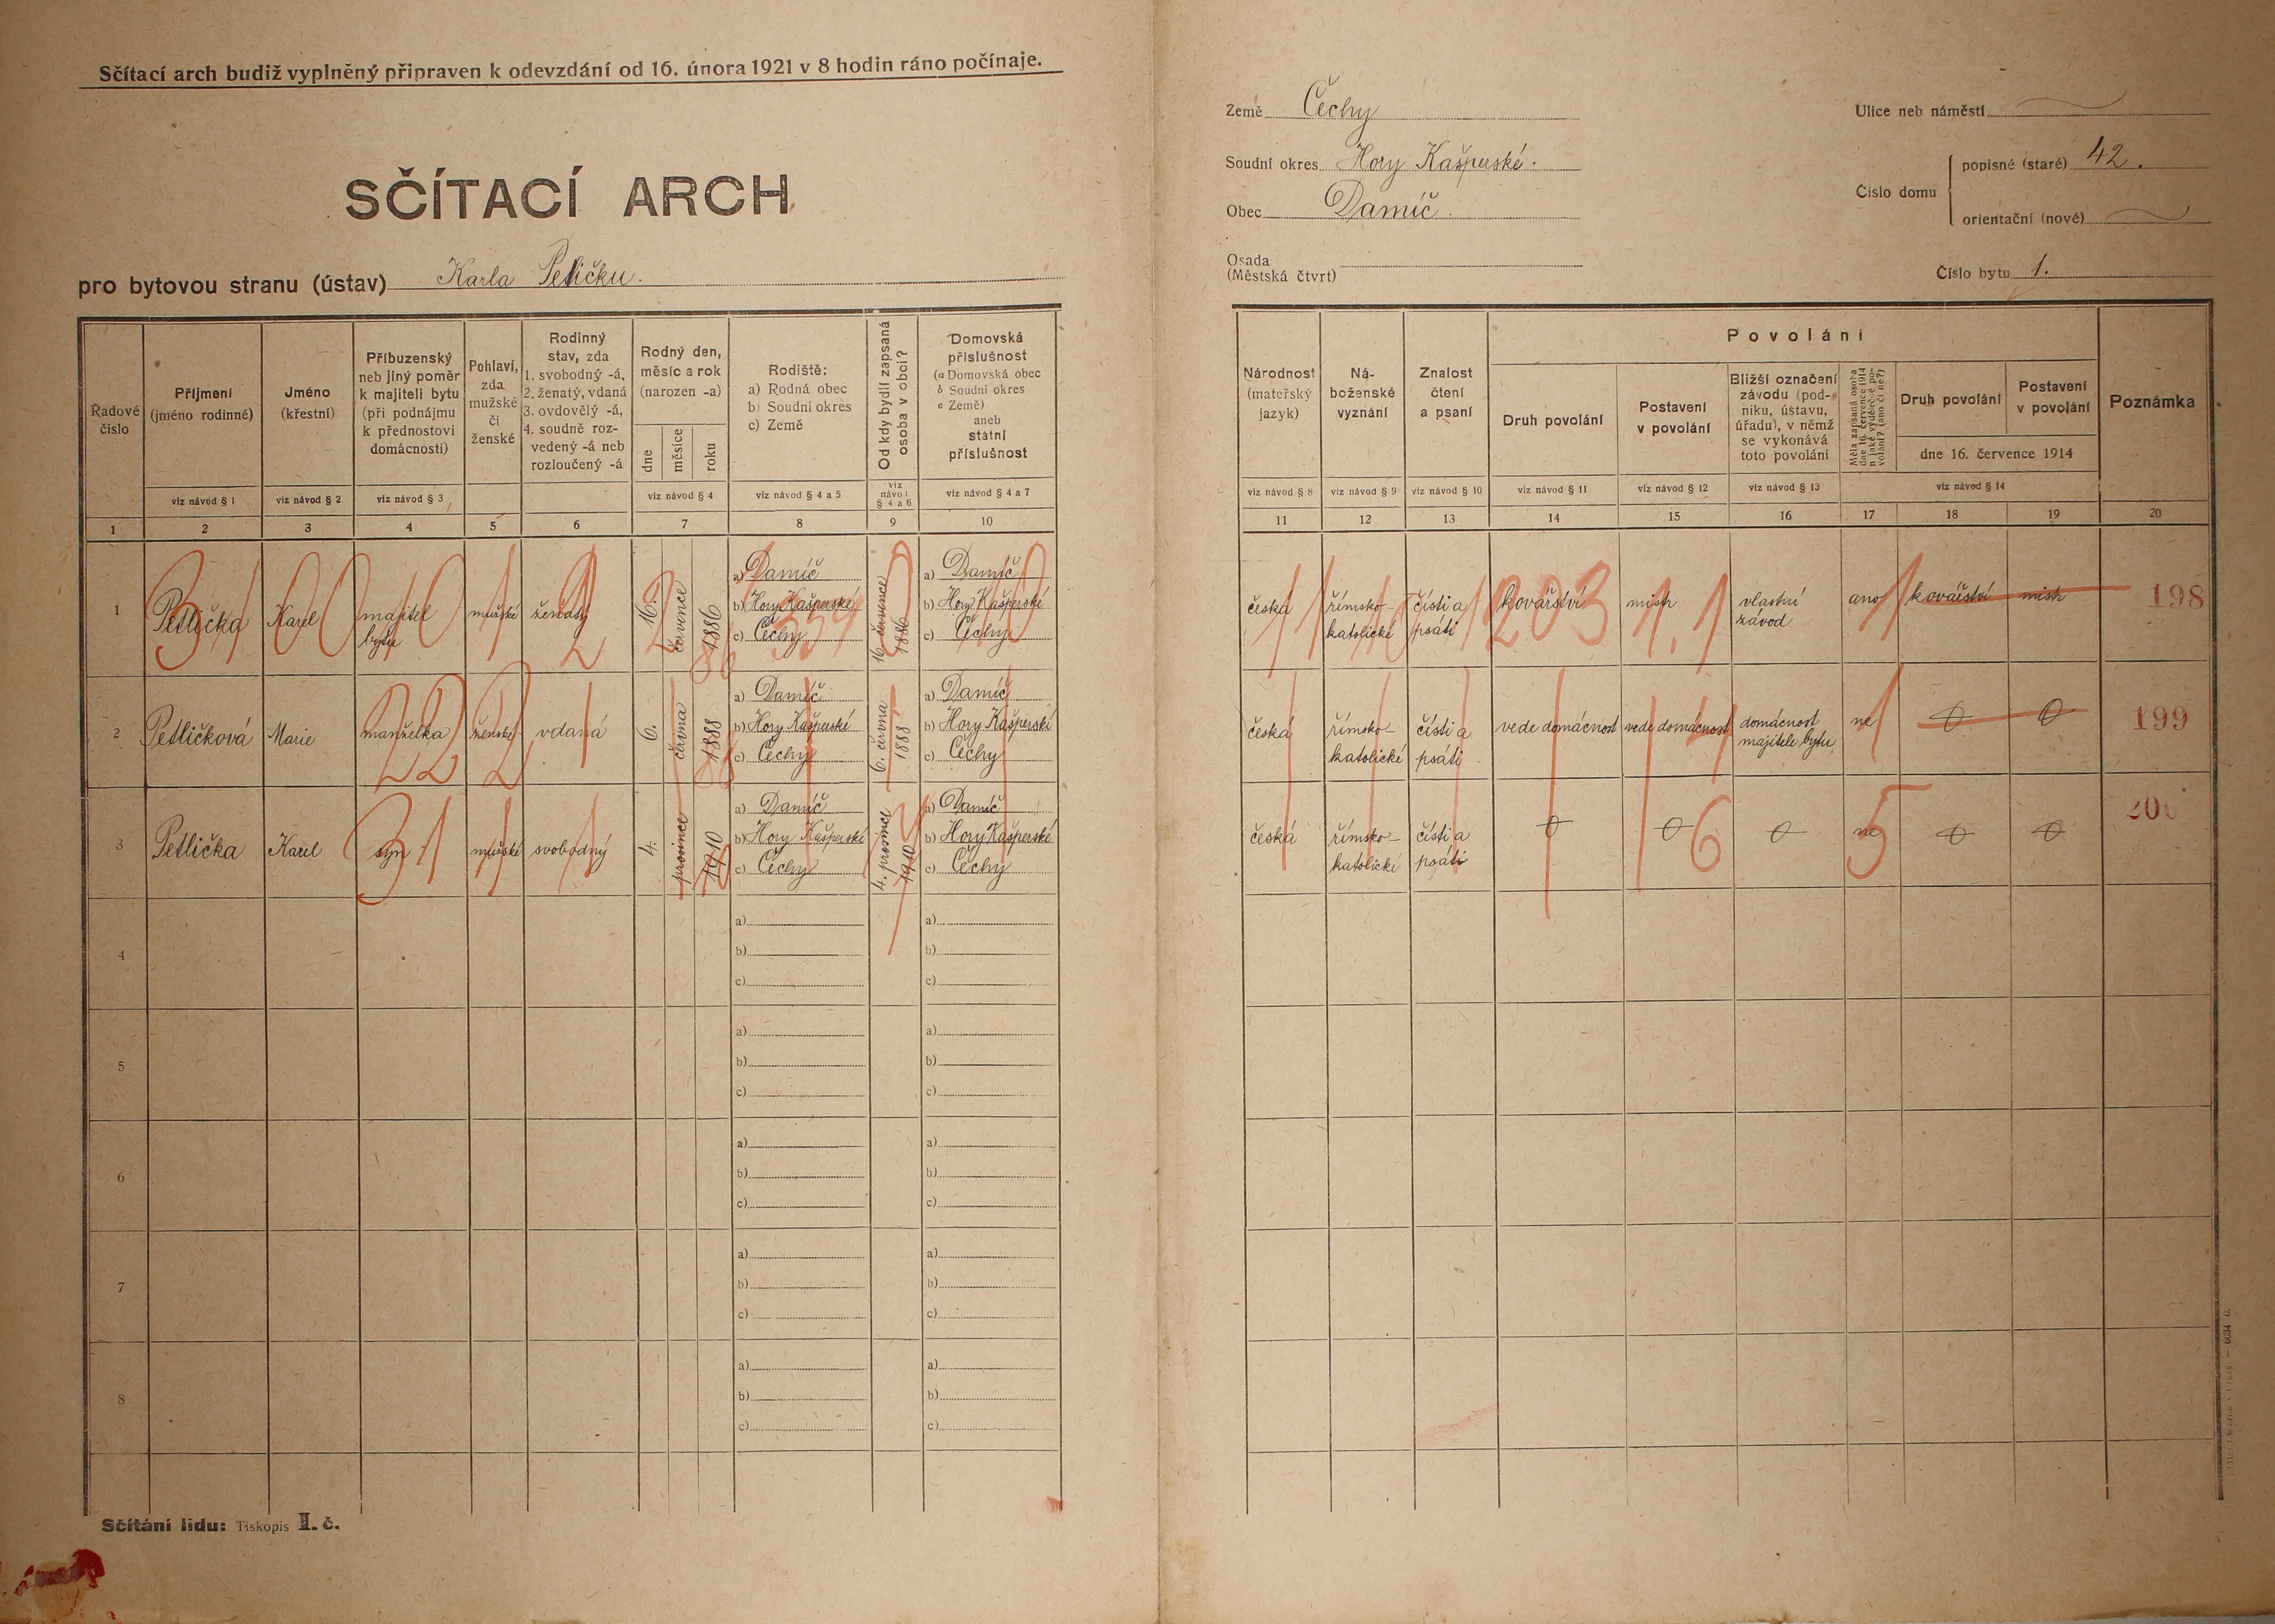 Sčítací arch budiž vyplněný připraven k odevzdání od 16. února 1921 v 8 hodin ráno počínaje.
SČÍTACÍ ARCH
pro bytovou stranu (ústav) Karla Petličku.
Země Čechy
Soudní okres Hory Kašperské.
Obec Damíč.
Osada
(Městská čtvrt)
Ulice neb náměstí
Číslo domu
popisné (staré) 42.
orientační (nové)
Číslo bytu 1.
Řadové číslo
Příjmení
(jméno rodinné)
viz návod § 1
Jméno
(křestní)
viz návod § 2
Příbuzenský
neb jiný poměr
k majiteli bytu
(při podnájmu
k přednostovi
domácnosti)
viz návod § 3
Pohlaví,
zda
mužské
či
ženské
Rodinný
stav, zda
1. svobodný -á,
2. ženatý, vdaná
3. ovdovělý -á,
4. soudně roz-
vedený -á neb
rozloučený -á
Rodný den,
měsíc a rok
(narozen -a)
dne
měsíce
roku
viz návod § 4
Rodiště:
a) Rodná obec
b) Soudní okres
c) Země
viz návod § 4 a 5
Od kdy bydlí zapsaná
osoba v obci?
viz
návod
§ 4 a 6
Domovská
příslušnost
(a Domovská obec
b Soudní okres
c Země)
aneb
státní
příslušnost
viz návod § 4 a 7
Národnost
(mateřský
jazyk)
viz návod § 8
Ná-
boženské
vyznání
viz návod § 9
Znalost
čtení
a psaní
viz návod § 10
Povolání
Druh povolání
viz návod § 11
Postavení
v povolání
viz návod § 12
Bližší označení
závodu (pod-
niku, ústavu,
úřadu), v němž
se vykonává
toto povolání
viz návod § 13
Měla zapsaná osoba
dne 16. července 1914
nějaké výdělečné po-
volání? (ano či ne?)
Druh povolání
Postavení
v povolání
dne 16. července 1914
viz návod § 14
Poznámka
1 2 3 4 5 6 7 8 9 10
11 12 13 14 15 16 17 18 19 20
1 Petlička Karel majitel bytu mužské ženatý 16. července 1886
a) Damíč
b) Hory Kašperské
c) Čechy
16. července 1886
a) Damíč
b) Hory Kašperské
c) Čechy
česká římsko-katolické čísti a psáti kovářství mistr vlastní závod ano kovářství mistr 198
2 Petličková Marie manželka ženské vdaná 6. června 1888
a) Damíč
b) Hory Kašperské
c) Čechy
6. června 1888
a) Damíč
b) Hory Kašperské
c) Čechy
česká římsko-katolické čísti a psáti vede domácnost vede domácnost domácnost majitele bytu ne 0 0 199
3 Petlička Karel syn mužské svobodný 4. prosince 1910
a) Damíč
b) Hory Kašperské
c) Čechy
4. prosince 1910
a) Damíč
b) Hory Kašperské
c) Čechy
česká římsko-katolické čísti a psáti 0 0 0 ne 0 0 200
4
a)
b)
c)
a)
b)
c)
5
a)
b)
c)
a)
b)
c)
6
a)
b)
c)
a)
b)
c)
7
a)
b)
c)
a)
b)
c)
8
a)
b)
c)
a)
b)
c)
Sčítání lidu: Tiskopis II. č.